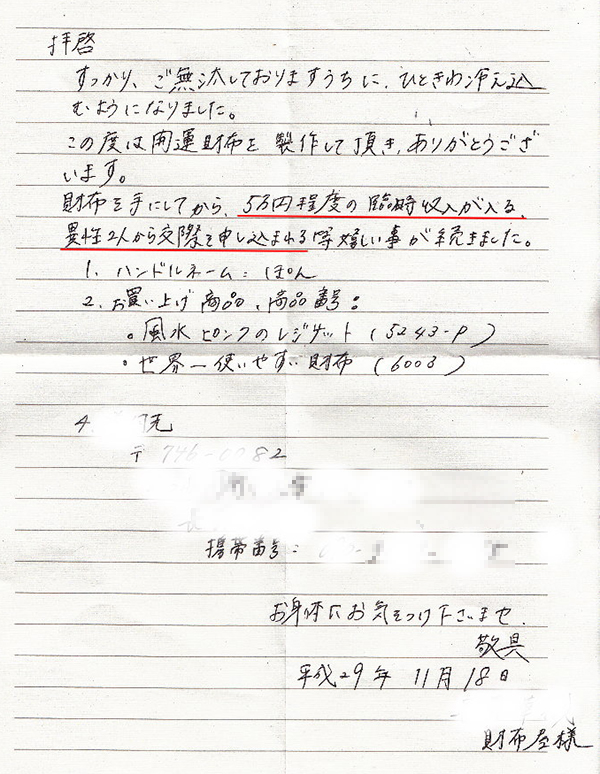 拝啓
すっかり、ご無沙汰しておりますうちに、ひときわ冷え込
むようになりました。
この度は開運財布を製作して頂き、ありがとうござ
います。
財布を手にしてから、5万円程度の臨時収入が入る、
異性2人から交際を申し込まれる等嬉しい事が続きました。
1. ハンドルネーム：ぽん
2. お買い上げ商品、商品番号：
・風水ピンクのレジザット(5243-P)
・世界一使いやすい財布(6003)
4
先
〒746-0082
携帯番号：
お身体にお気をつけ下さいませ.
敬具
平成29年 11月18日
財布屋様